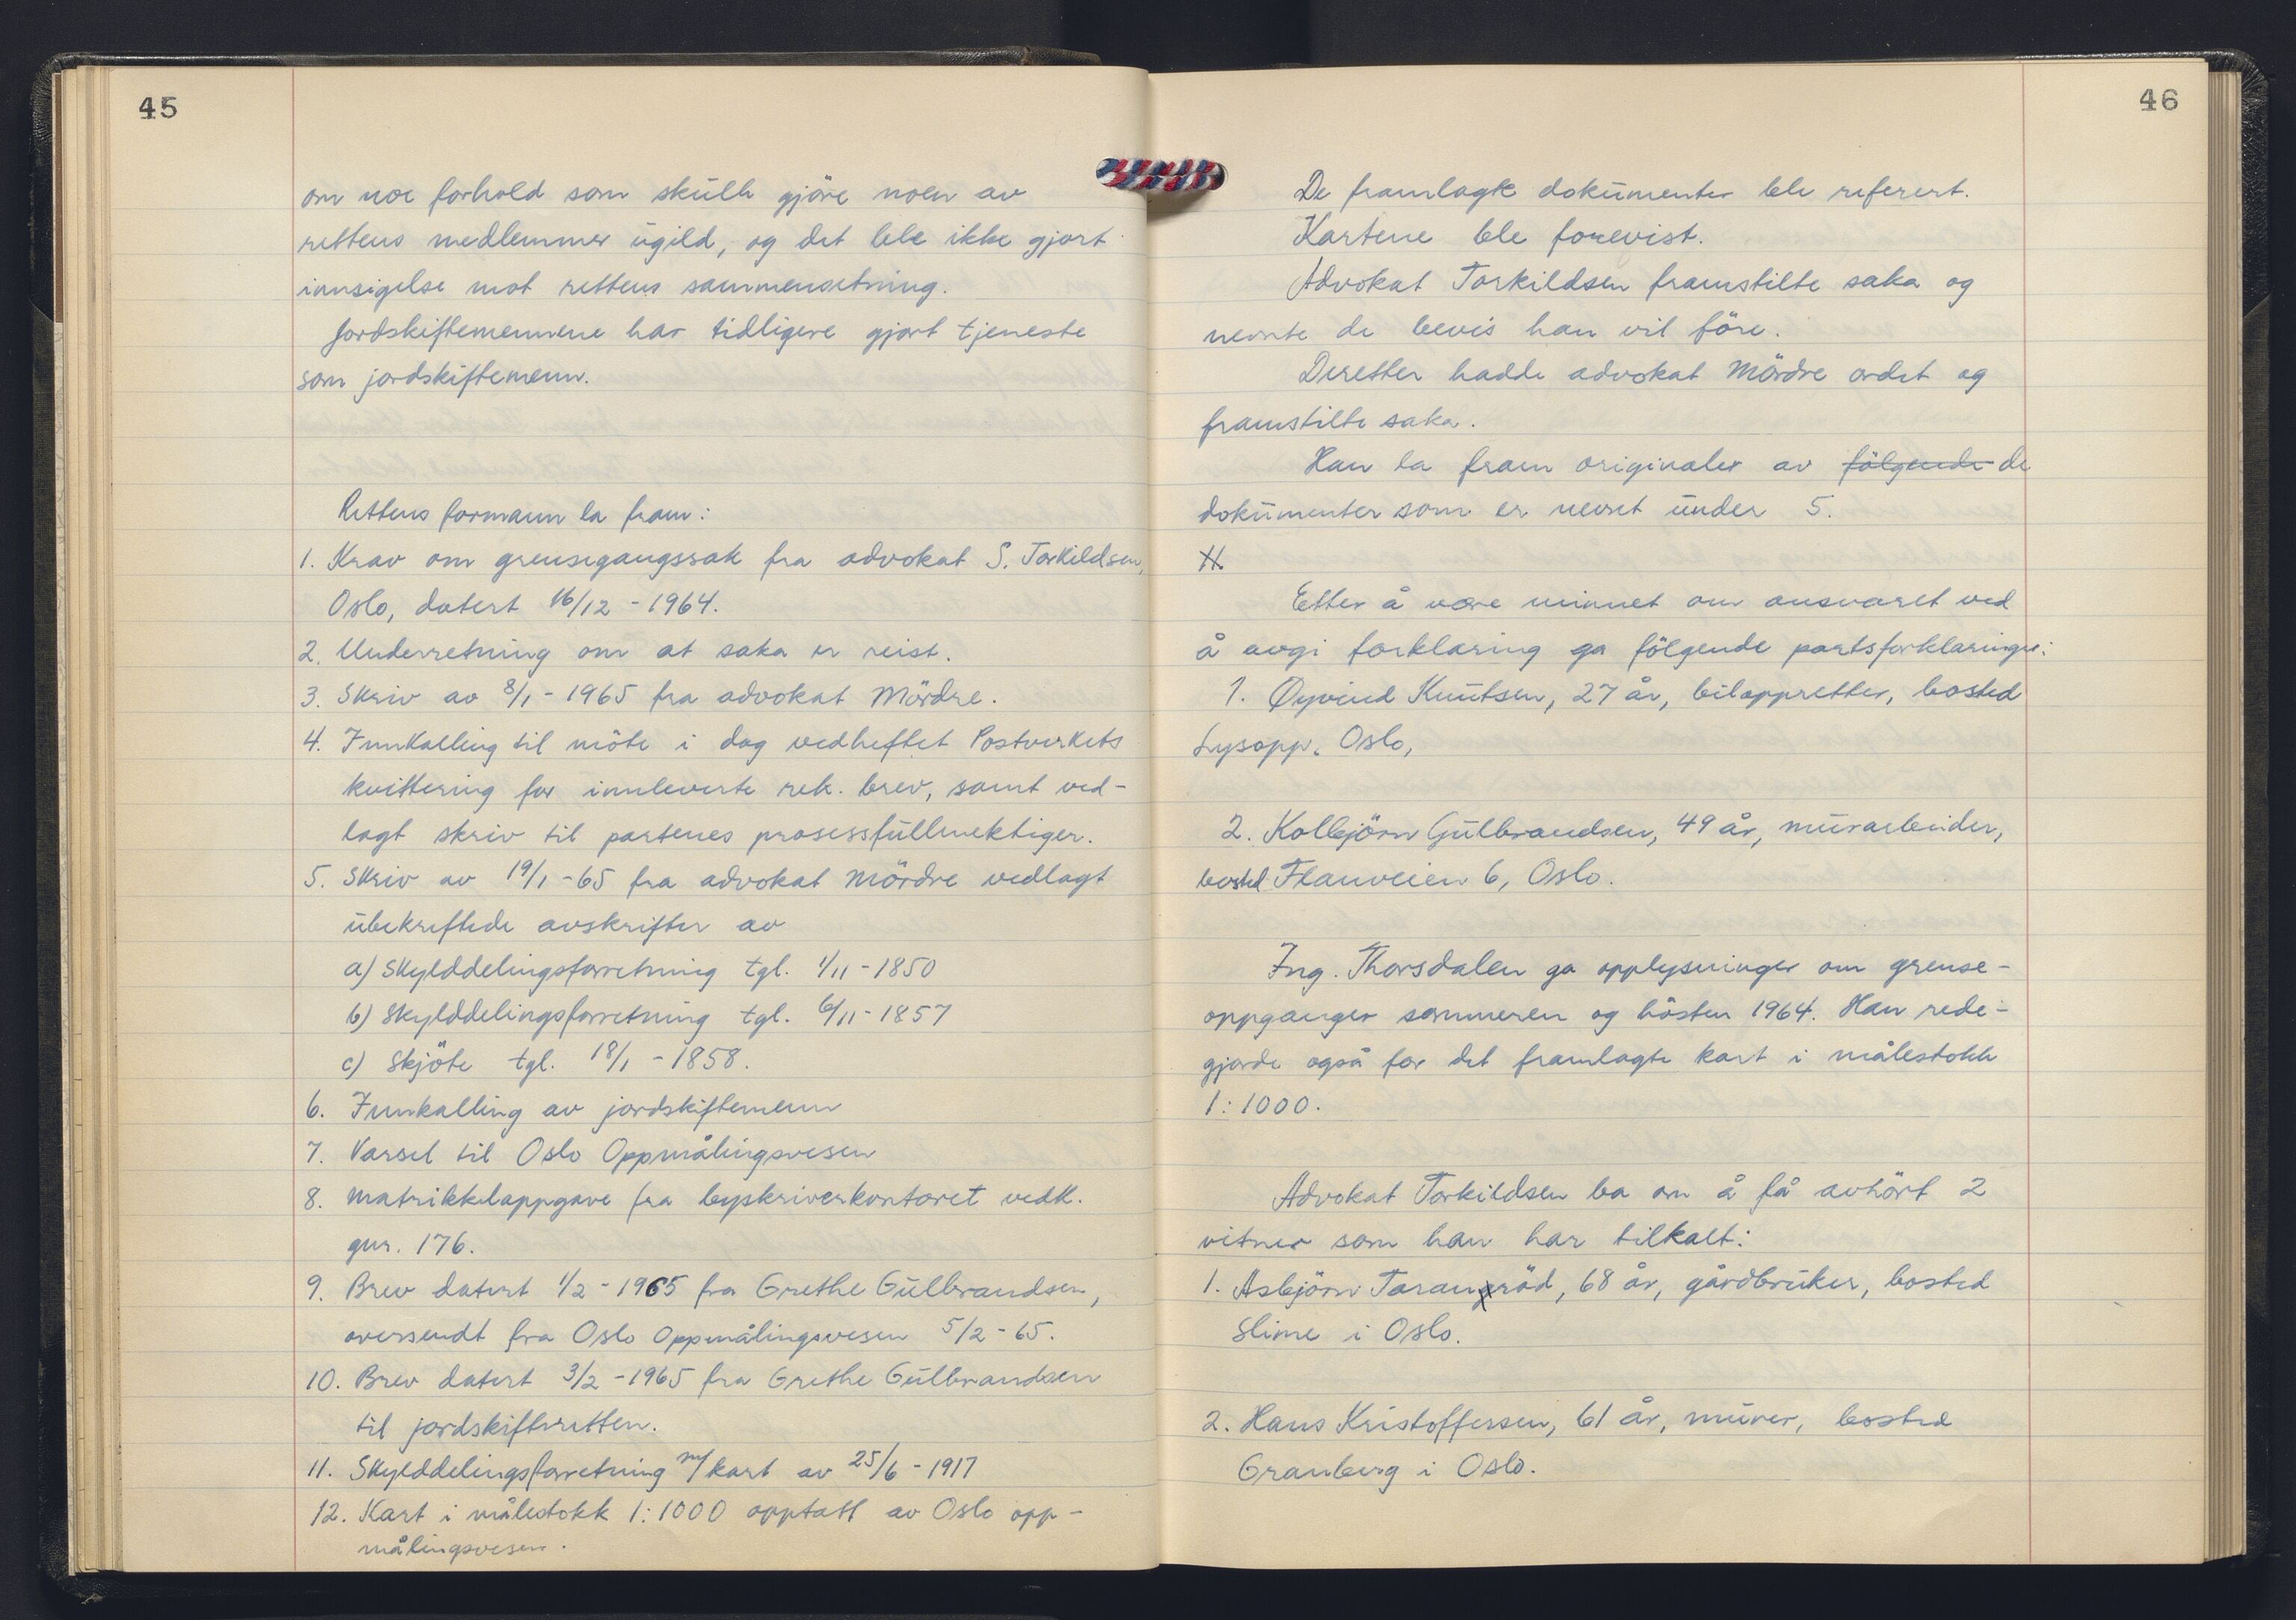 45
om noe forhold som skulle gjöre noen av
rettens medlemmer ugild, og det ble ikke gjort
innsigelse mot rettens sammensetning.
Jordskiftemennene har tidligere gjort tjeneste
som jordskiftemenn.
Rettens formann la fram:
1. Krav om grensegangssak fra advokat S. Torkildsen,
Oslo, datert 16/12 - 1964.
2. Underretning om at saka er reist.
3. Skriv av 8/1 - 1965 fra advokat Mördre.
4. Innkalling til möte i dag vedheftet Postverkets
kvittering for innleverte rek. brev, samt ved-
lagt skriv til partenes prosessfullmektiger.
5. Skriv av 19/1 - 65 fra advokat Mördre vedlagt
ubekreftede avskrifter av
a) Skylddelingsforretning tgl. 1/11 - 1850
b) Skylddelingsforretning tgl. 6/11 - 1857
c) Skjöte tgl. 18/1 - 1858.
6. Innkalling av jordskiftemenn
7. Varsel til Oslo Oppmålingsvesen
8. Matrikkeloppgave fra byskriverkontoret vedk.
gnr. 176.
9. Brev datert 1/2 - 1965 fra Grethe Gulbrandsen,
oversendt fra Oslo Oppmålingsvesen 5/2 - 65.
10. Brev datert 3/2 - 1965 fra Grethe Gulbrandsen
til jordskifteretten.
11. Skylddelingsforretning m/ kart av 25/6 - 1917
12. Kart i målestokk 1:1000 opptatt av Oslo opp-
målingsvesen.
46
De framlagte dokumenter ble referert.
Kartene ble forevist.
Advokat Torkildsen framstilte saka og
nevnte de bevis han vil före.
Deretter hadde advokat Mördre ordet og
framstilte saka.
Han la fram originaler av fölgende de
dokumenter som er nevnt under 5.
Etter å være minnet om ansvaret ved
å avgi forklaring ga fölgende partsforklaringer:
1. Øyvind Knutsen, 27 år, biloppretter, bosted
Lysopp, Oslo,
2. Kolbjörn Gulbrandsen, 49 år, murarbeider,
bosted Flauveien 6, Oslo.
Ing. Thorsdalen ga opplysninger om grense-
oppganger sommeren og hösten 1964. Han rede-
gjorde også for det framlagte kart i målestokk
1:1000.
Advokat Torkildsen ba om å få avhört 2
vitner som han har tilkalt:
1. Asbjörn Taranröd, 68 år, gårdbruker, bosted
Slime i Oslo.
2. Hans Kristoffersen, 61 år, murer, bosted
Granberg i Oslo.